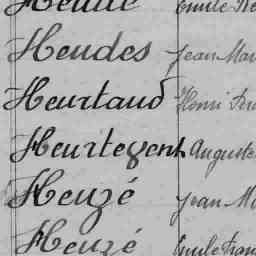 Heudes Jean Mar
Heurtaud Henri Fer
Heurtevent Auguste
Heuzé Jean M
Heuzé Emile Fran